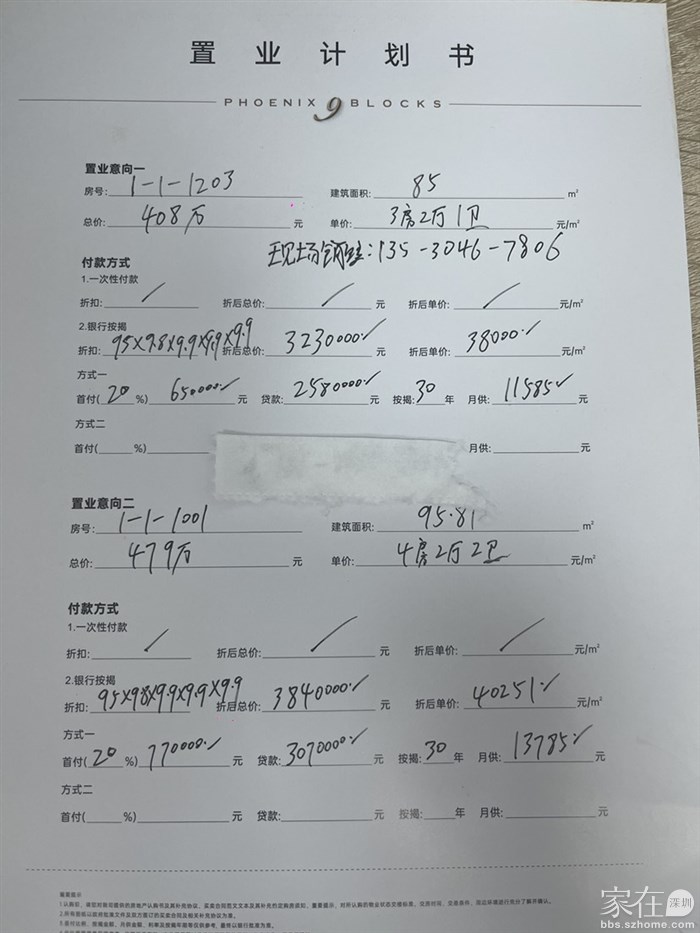 置业计划书
PHOENIX 9 BLOCKS
置业意向一
房号: 1-1-1203 建筑面积: 85 m²
总价: 408万 元 单价: 3房2厅1卫 元/m²
现场销冠: 135-3046-7806
付款方式
1.一次性付款
折扣: / 折后总价: / 元 折后单价: / 元/m²
2.银行按揭
折扣: 95×9.8×9.9×9.9×9.9 折后总价: 3230000.✓ 元 折后单价: 38000✓ 元/m²
方式一
首付(20%) 650000.✓ 元 贷款: 2580000✓ 元 按揭: 30 年 月供: 11585✓ 元
方式二
首付( %) 月供: 元
置业意向二
房号: 1-1-1001 建筑面积: 95.81 m²
总价: 479万 元 单价: 4房2厅2卫 元/m²
付款方式
1.一次性付款
折扣: / 折后总价: / 元 折后单价: / 元/m²
2.银行按揭
折扣: 95×98×9.9×9.9×9.9 折后总价: 3840000.✓ 元 折后单价: 40251.✓ 元/m²
方式一
首付(20%) 770000.✓ 元 贷款: 3070000.✓ 元 按揭: 30 年 月供: 13785✓ 元
方式二
首付( %) 元 贷款: 元 按揭: 年 月供: 元
重要提示
家在深圳
bbs.szhome.com